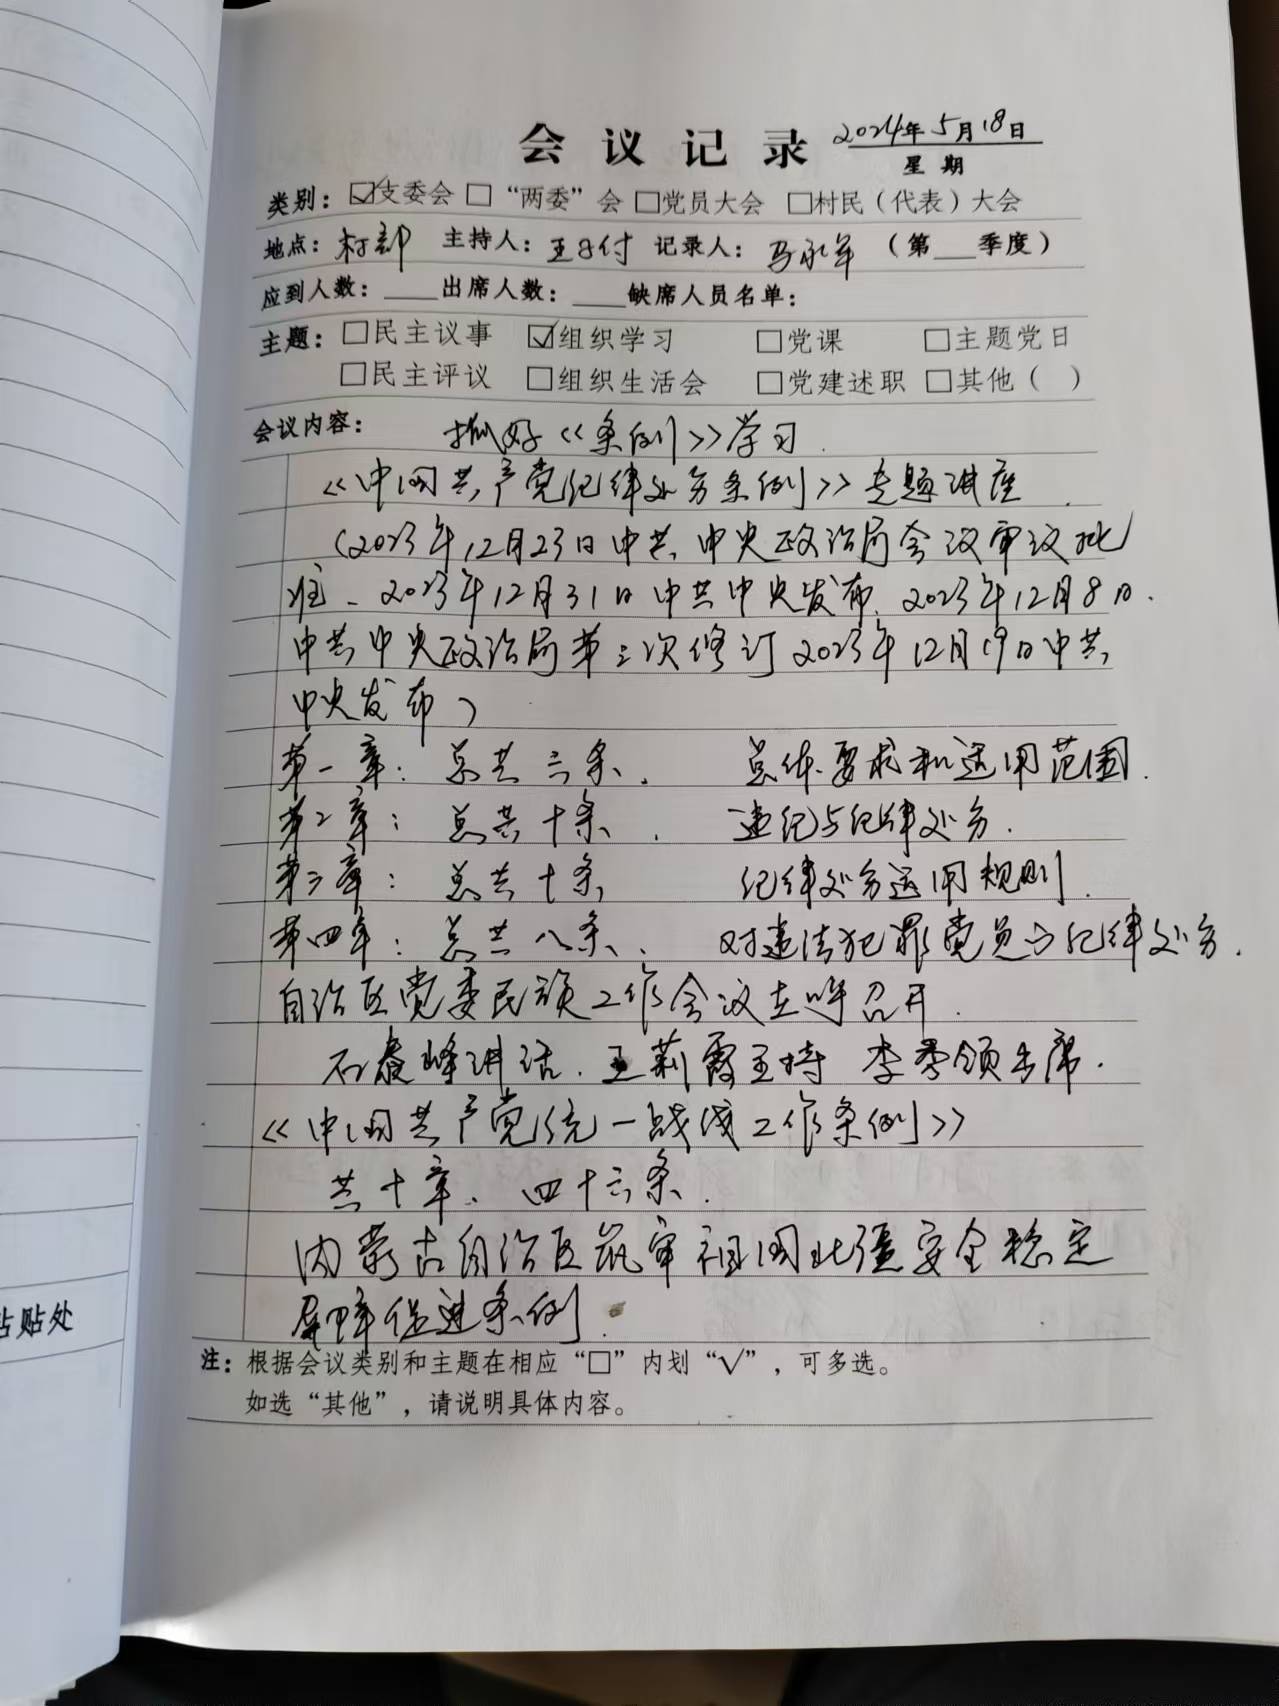 会议记录 2024年5月18日
星期
类别：☑支委会 □“两委”会 □党员大会 □村民（代表）大会
地点：村部 主持人：王付 记录人：马永军 （第___季度）
应到人数：____出席人数：____缺席人员名单：
主题：□民主议事 ☑组织学习 □党课 □主题党日
□民主评议 □组织生活会 □党建述职 □其他（ ）
会议内容： 抓好《条例》学习.
《中国共产党纪律处分条例》专题讲座.
（2023年12月23日中共中央政治局会议审议批
准、2023年12月31日中共中央发布、2023年12月8日.
中共中央政治局第三次修订2023年12月19日中共
中央发布）
第一章：总共六条. 总体要求和适用范围.
第二章：总共十条. 违纪与纪律处分.
第三章：总共十条 纪律处分运用规则.
第四章：总共八条. 对违法犯罪党员的纪律处分.
自治区党委民族工作会议在呼召开.
石泰峰讲话.王莉霞主持 李秀领出席.
《中国共产党统一战线工作条例》
共十章、四十六条.
内蒙古自治区筑牢祖国北疆安全稳定
屏障促进条例.
注：根据会议类别和主题在相应“□”内划“√”，可多选。
如选“其他”，请说明具体内容。
粘贴处